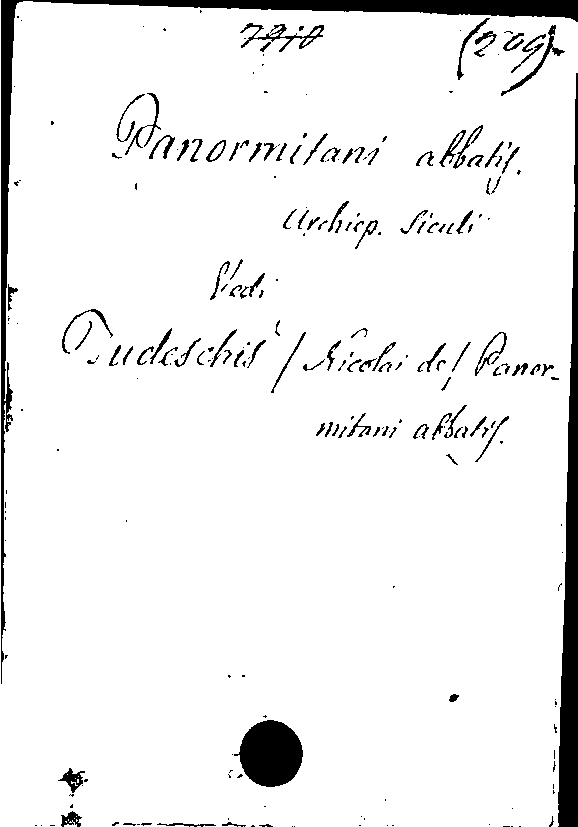 7910 (209)
Panormitani abbatis.
Archiep. Siculi
Vedi
Tudeschis / Nicolai de / Panor-
mitani abbatis.